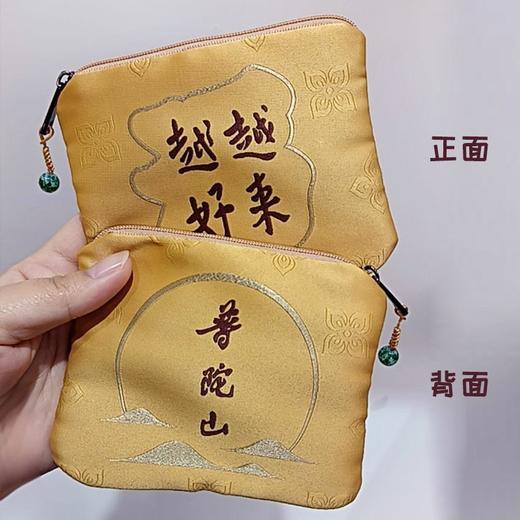 越来
越好
正面
普陀山
背面